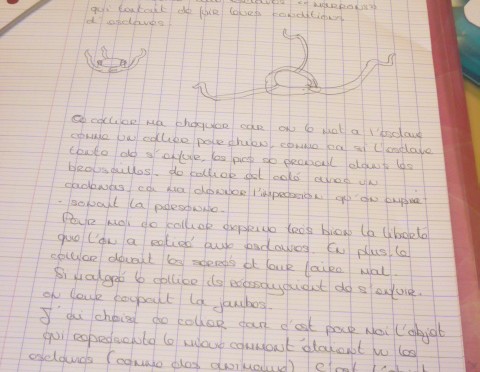 esclaves "marrons"
qui tentait de fuir leurs conditions
d'esclaves.
Ce collier m'a choquée car on le met a l'esclave
comme un collier pour chien, comme ca si l'esclave
tente de s'enfuir, les pics se prennent dans les
broussailles. de collier est celé avec un
cadenas, ca me donne l'impression qu'on empri-
-sonait la personne.
Pour moi ce collier exprime très bien la liberte
que l'on a retiré aux esclaves. En plus le
collier devait les serrés et leur faire mal.
Si malgré le collier ils réessayaient de s'enfuir.
on leur coupait la jambes.
J'ai choisi ce collier car c'est pour moi l'objet
qui représente le mieux comment étaient vu les
esclaves (comme des animaux) C'est